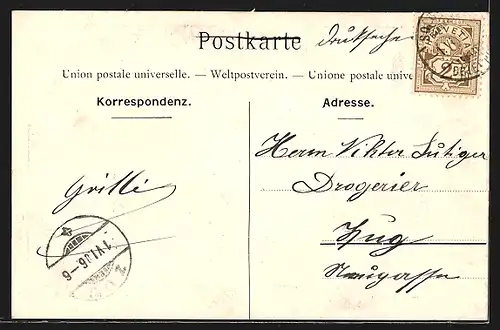 Postkarte Drucksache
Union postale universelle. — Weltpostverein. — Unione postale unive
Korrespondenz.
Adresse.
HELVETIA
2
Herrn Viktor Lutiger
Drogerier
Grilli
Zug
Neugasse
1.VI.06-6